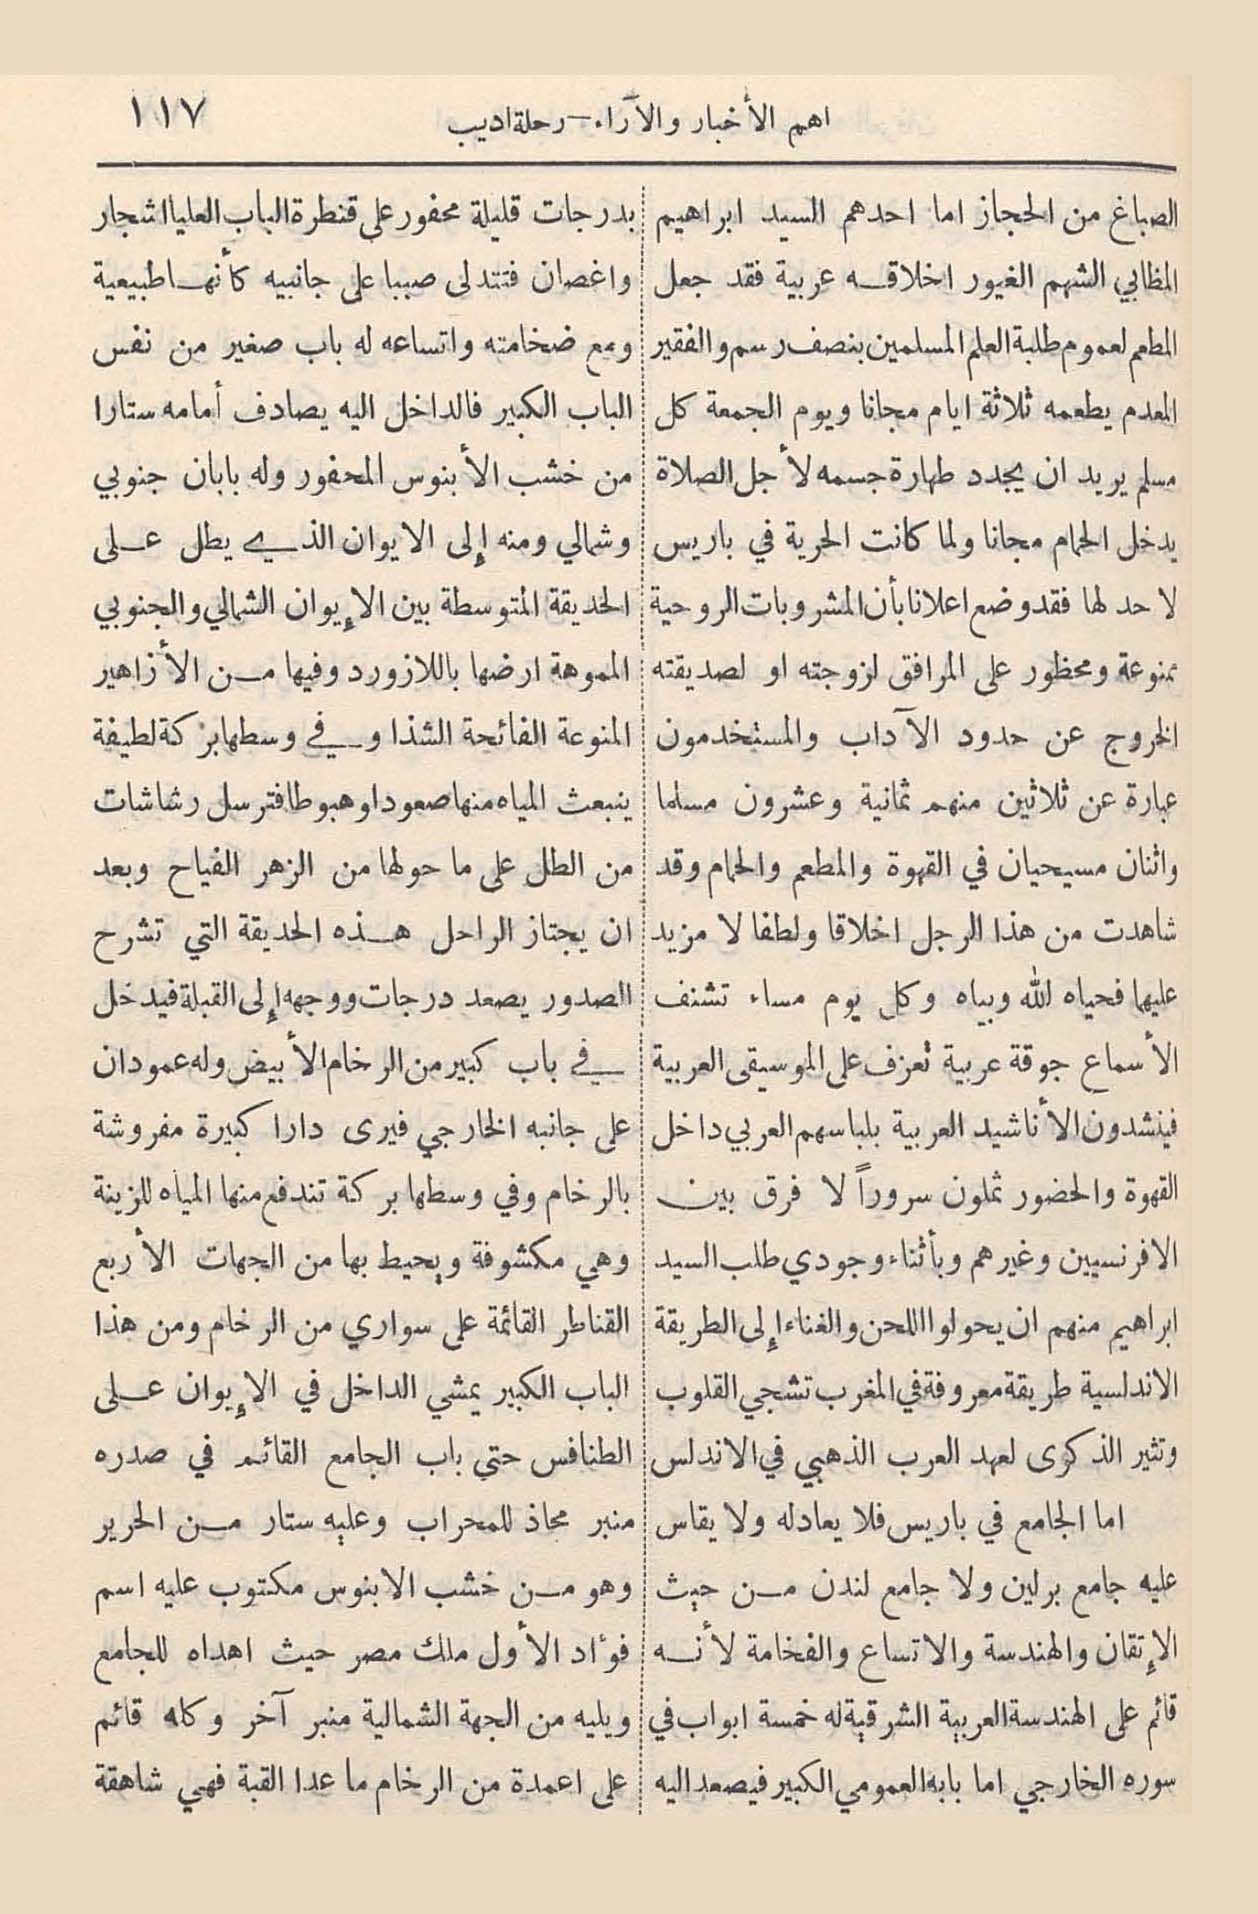 اهم الأخبار والآراء – رحلة اديب
١١٧
الصباغ من الحجاز اما احدهم السيد ابراهيم
المظابي الشهم الغيور اخلاقه عربية فقد جعل
المطعم لعموم طلبة العلم المسلمين بنصف رسم والفقير
المعدم يطعمه ثلاثة ايام مجانا ويوم الجمعة كل
مسلم يريد ان يجدد طهارة جسمه لأجل الصلاة
يدخل الحمام مجانا ولما كانت الحرية في باريس
لا حد لها فقد وضع اعلانا بأن المشروبات الروحية
ممنوعة ومحظور على المرافق لزوجته او لصديقته
الخروج عن حدود الآداب والمستخدمون
عبارة عن ثلاثين منهم ثمانية وعشرون مسلما
واثنان مسيحيان في القهوة والمطعم والحمام وقد
شاهدت من هذا الرجل اخلاقا ولطفا لا مزيد
عليها فحياه الله وبياه وكل يوم مساء تشنف
الأسماع جوقة عربية تعزف على الموسيقى العربية
فينشدون الأناشيد العربية بلباسهم العربي داخل
القهوة والحضور ثملون سروراً لا فرق بين
الافرنسيين وغيرهم وبأثناء وجودي طلب السيد
ابراهيم منهم ان يحولوا اللحن والغناء إلى الطريقة
الاندلسية طريقة معروفة في المغرب تشجي القلوب
وتثير الذكرى لعهد العرب الذهبي في الاندلس
اما الجامع في باريس فلا يعادله ولا يقاس
عليه جامع برلين ولا جامع لندن من حيث
الإتقان والهندسة والاتساع والفخامة لأنه
قائم على الهندسة العربية الشرقية له خمسة ابواب في
سوره الخارجي اما بابه العمومي الكبير فيصعد اليه
بدرجات قليلة محفور على قنطرة الباب العليا اشجار
واغصان فتتدلى صببا على جانبيه كأنها طبيعية
ومع ضخامته واتساعه له باب صغير من نفس
الباب الكبير فالداخل اليه يصادف أمامه ستارا
من خشب الأبنوس المحفور وله بابان جنوبي
وشمالي ومنه إلى الايوان الذي يطل على
الحديقة المتوسطة بين الإيوان الشمالي والجنوبي
المموهة ارضها باللازورد وفيها من الأزاهير
المنوعة الفائحة الشذا وفي وسطها بركة لطيفة
ينبعث المياه منها صعودا وهبوطا فترسل رشاشات
من الطل على ما حولها من الزهر الفياح وبعد
ان يجتاز الراحل هذه الحديقة التي تشرح
الصدور يصعد درجات ووجهه إلى القبلة فيدخل
في باب كبير من الرخام الأبيض وله عمودان
على جانبه الخارجي فيرى دارا كبيرة مفروشة
بالرخام وفي وسطها بركة تندفع منها المياه للزينة
وهي مكشوفة ويحيط بها من الجهات الأربع
القناطر القائمة على سواري من الرخام ومن هذا
الباب الكبير يمشي الداخل في الإيوان على
الطنافس حتي باب الجامع القائم في صدره
منبر محاذ للمحراب وعليه ستار من الحرير
وهو من خشب الابنوس مكتوب عليه اسم
فؤاد الأول ملك مصر حيث اهداه للجامع
ويليه من الجهة الشمالية منبر آخر وكله قائم
على اعمدة من الرخام ما عدا القبة فهي شاهقة